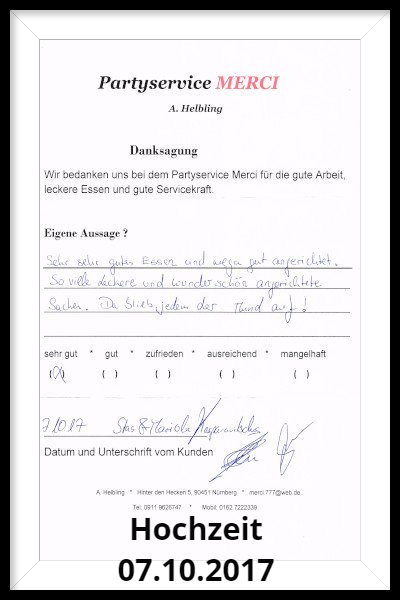 Partyservice MERCI
A. Helbling
Danksagung
Wir bedanken uns bei dem Partyservice Merci für die gute Arbeit,
leckere Essen und gute Servicekraft.
Eigene Aussage ?
Sehr sehr gutes Essen und mega gut angerichtet.
So viele leckere und wunderschön angerichtete
Sachen. Da blieb jedem der Mund auf!
sehr gut * gut * zufrieden * ausreichend * mangelhaft
(X) ( ) ( ) ( ) ( )
7.10.17 Stas & Mariola
Datum und Unterschrift vom Kunden
A. Helbling * Hinter den Hecken 5, 90451 Nürnberg * merci.777@web.de
Tel: 0911 9626747 * Mobil: 0162 7222339
Hochzeit
07.10.2017